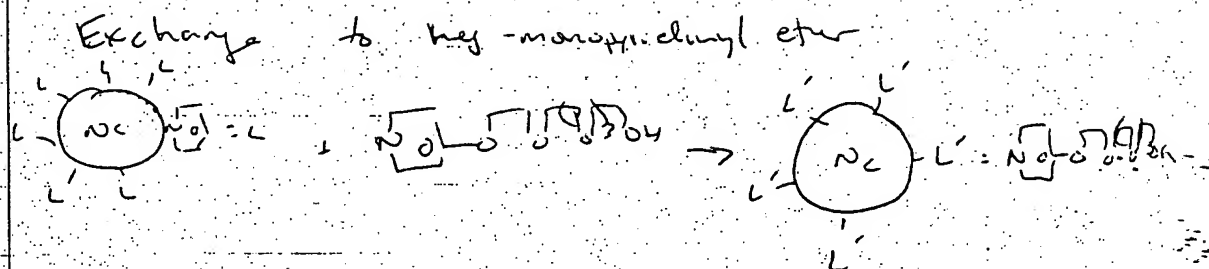 Exchange to heg-monopyridinyl ether
L L L L NC N O = L , N O O O O OH → L' L' L' NC L' = N O O O O OH
L' L L' L'